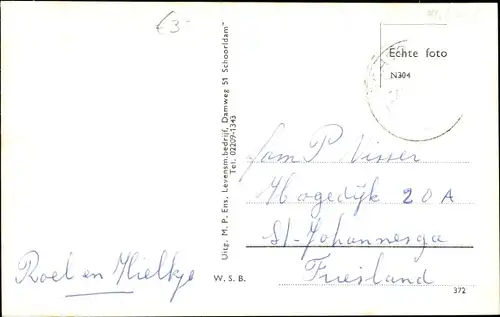 €3-
Echte foto
N304
Uitg. M. P. Ens, Levensm.bedrijf, Damweg 51 Schoorldam"
Tel. 02209-1343
Fam P Visser
Hogedijk 20A
St-Johannesga
Friesland
Roel en Hieltje
W. S. B.
372